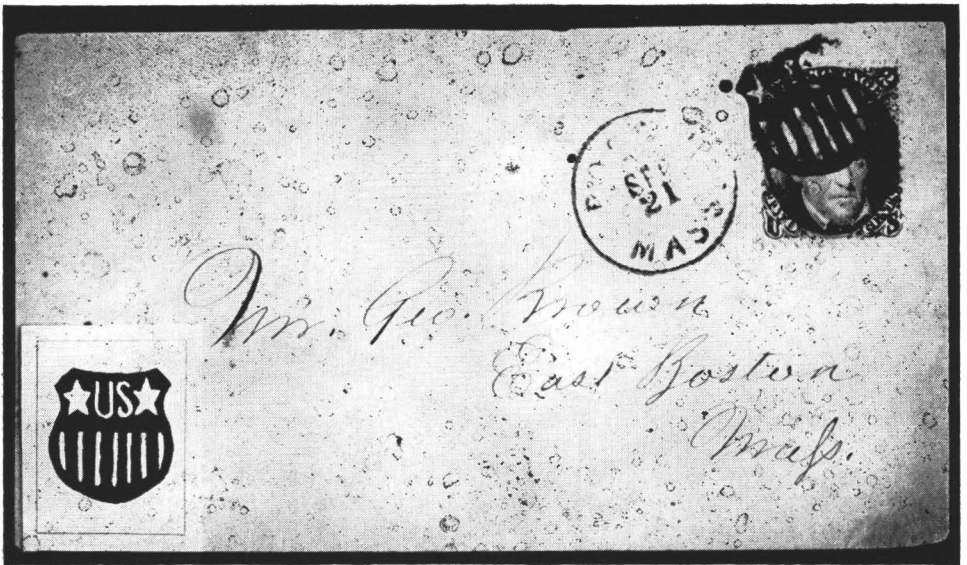 SEP
21
MASS
Mr. Geo. Brown
East Boston
Mass.
US